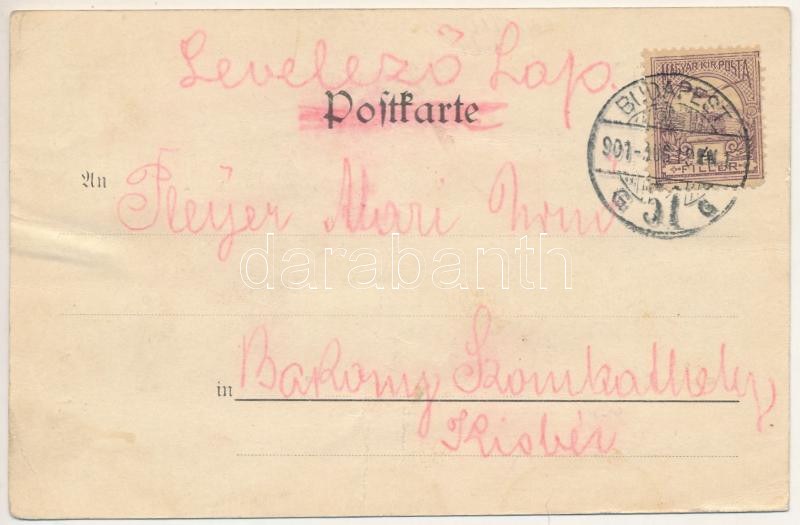 Levelező Lap.
Postkarte
MAGYAR KIR. POSTA
BUDAPEST
901-AUG
FILLÉR
An
Pleyer Mari
darabanth
in Bakony Szombathely,
Kisbér